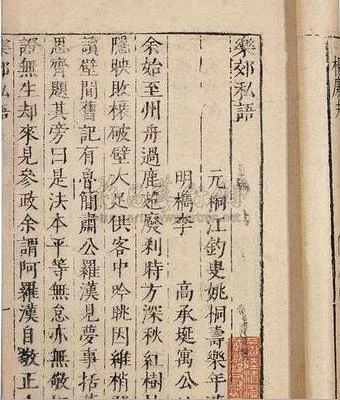 樂郊私語
元桐江釣叟姚桐壽樂年
明檇李 高承埏寓公
余始至州舟過鹿苑廢刹時方深秋紅樹
隱映敗檐破壁大足供客中吟眺因維梢
讀壁間舊記有魯簡肅公羅漢見夢事括
思齊題其旁曰是法本平等無怠亦無敬
證無生却來見參政余謂阿羅漢自敬止
樂郊私語